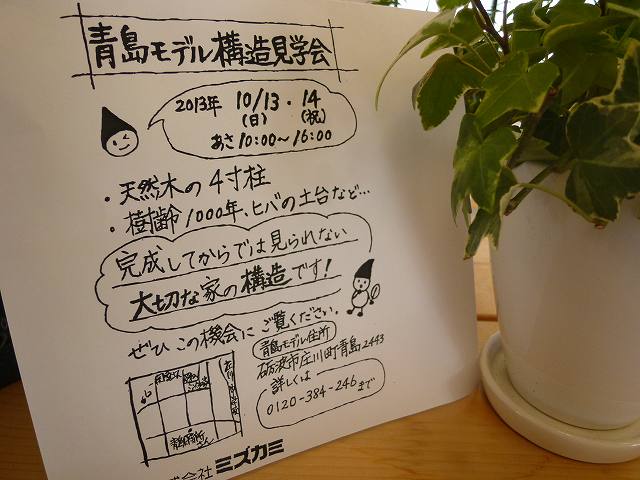 青島モデル構造見学会
2013年 10/13・14
(日) (祝)
あさ10:00〜16:00
・天然木の4寸柱
・樹齢1000年、ヒバの土台など…
完成してからでは見られない
大切な家の構造です!
ぜひ この機会に ご覧ください。
青島モデル住所
砺波市庄川町青島2443
詳しくは
0120-384-246まで
会社 ミズカミ